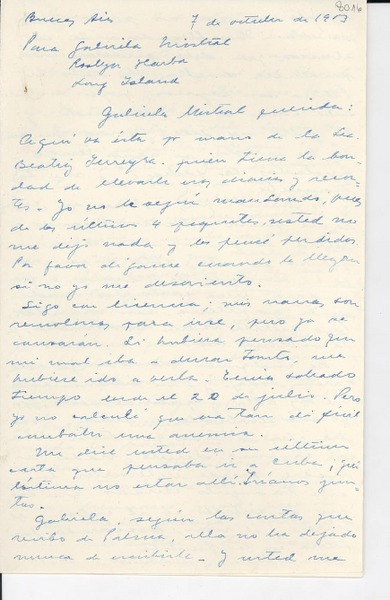 8016
Buenos Aires 7 de octubre de 1953
Para Gabriela Mistral
Roslyn Harbor
Long Island
Gabriela Mistral querida:
Aquí va ésta por mano de la Sra.
Beatriz Ferreyra quien tiene la bon-
dad de llevarle unos diarios y recor-
tes. Yo no le seguí mandando, pues
de los últimos 4 paquetes, usted no
me dijo nada y los pensé perdidos.
Por favor dígame cuando le llegan
si no yo me desoriento.
Sigo con licencia; mis nanas son
remolonas para irse, pero ya se
cansarán. Si hubiera pensado que
mi mal iba a durar tanto, me
hubiera ido a verla. Tenía sobrado
tiempo desde el 22 de julio. Pero
yo no calculé que era tan difícil
combatir una anemia.
Me dice usted en su última
carta que pensaba ir a Cuba; ¡qué
lástima no estar allí! Iríamos jun-
tas.
Gabriela, según las cartas que
recibo de Palma, ella no ha dejado
nunca de escribirle. Y usted me